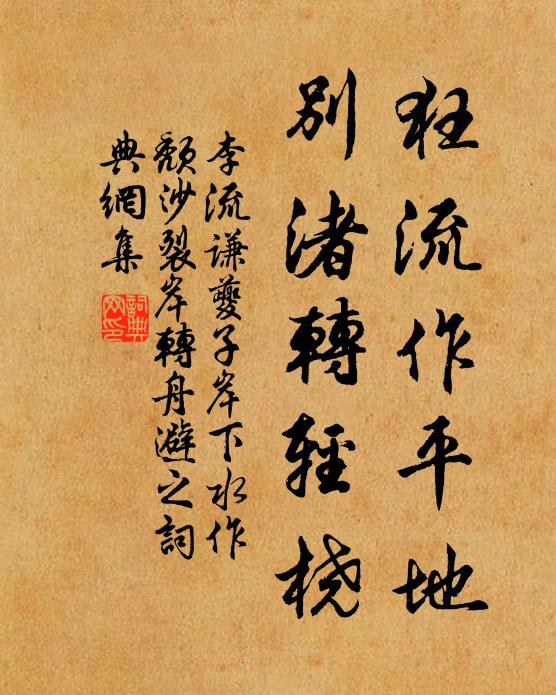 狂流作平地
別渚轉輕橈
李流謙夔子岸下水作
頹沙裂岸轉舟避之詞
典網集
詞典
网印